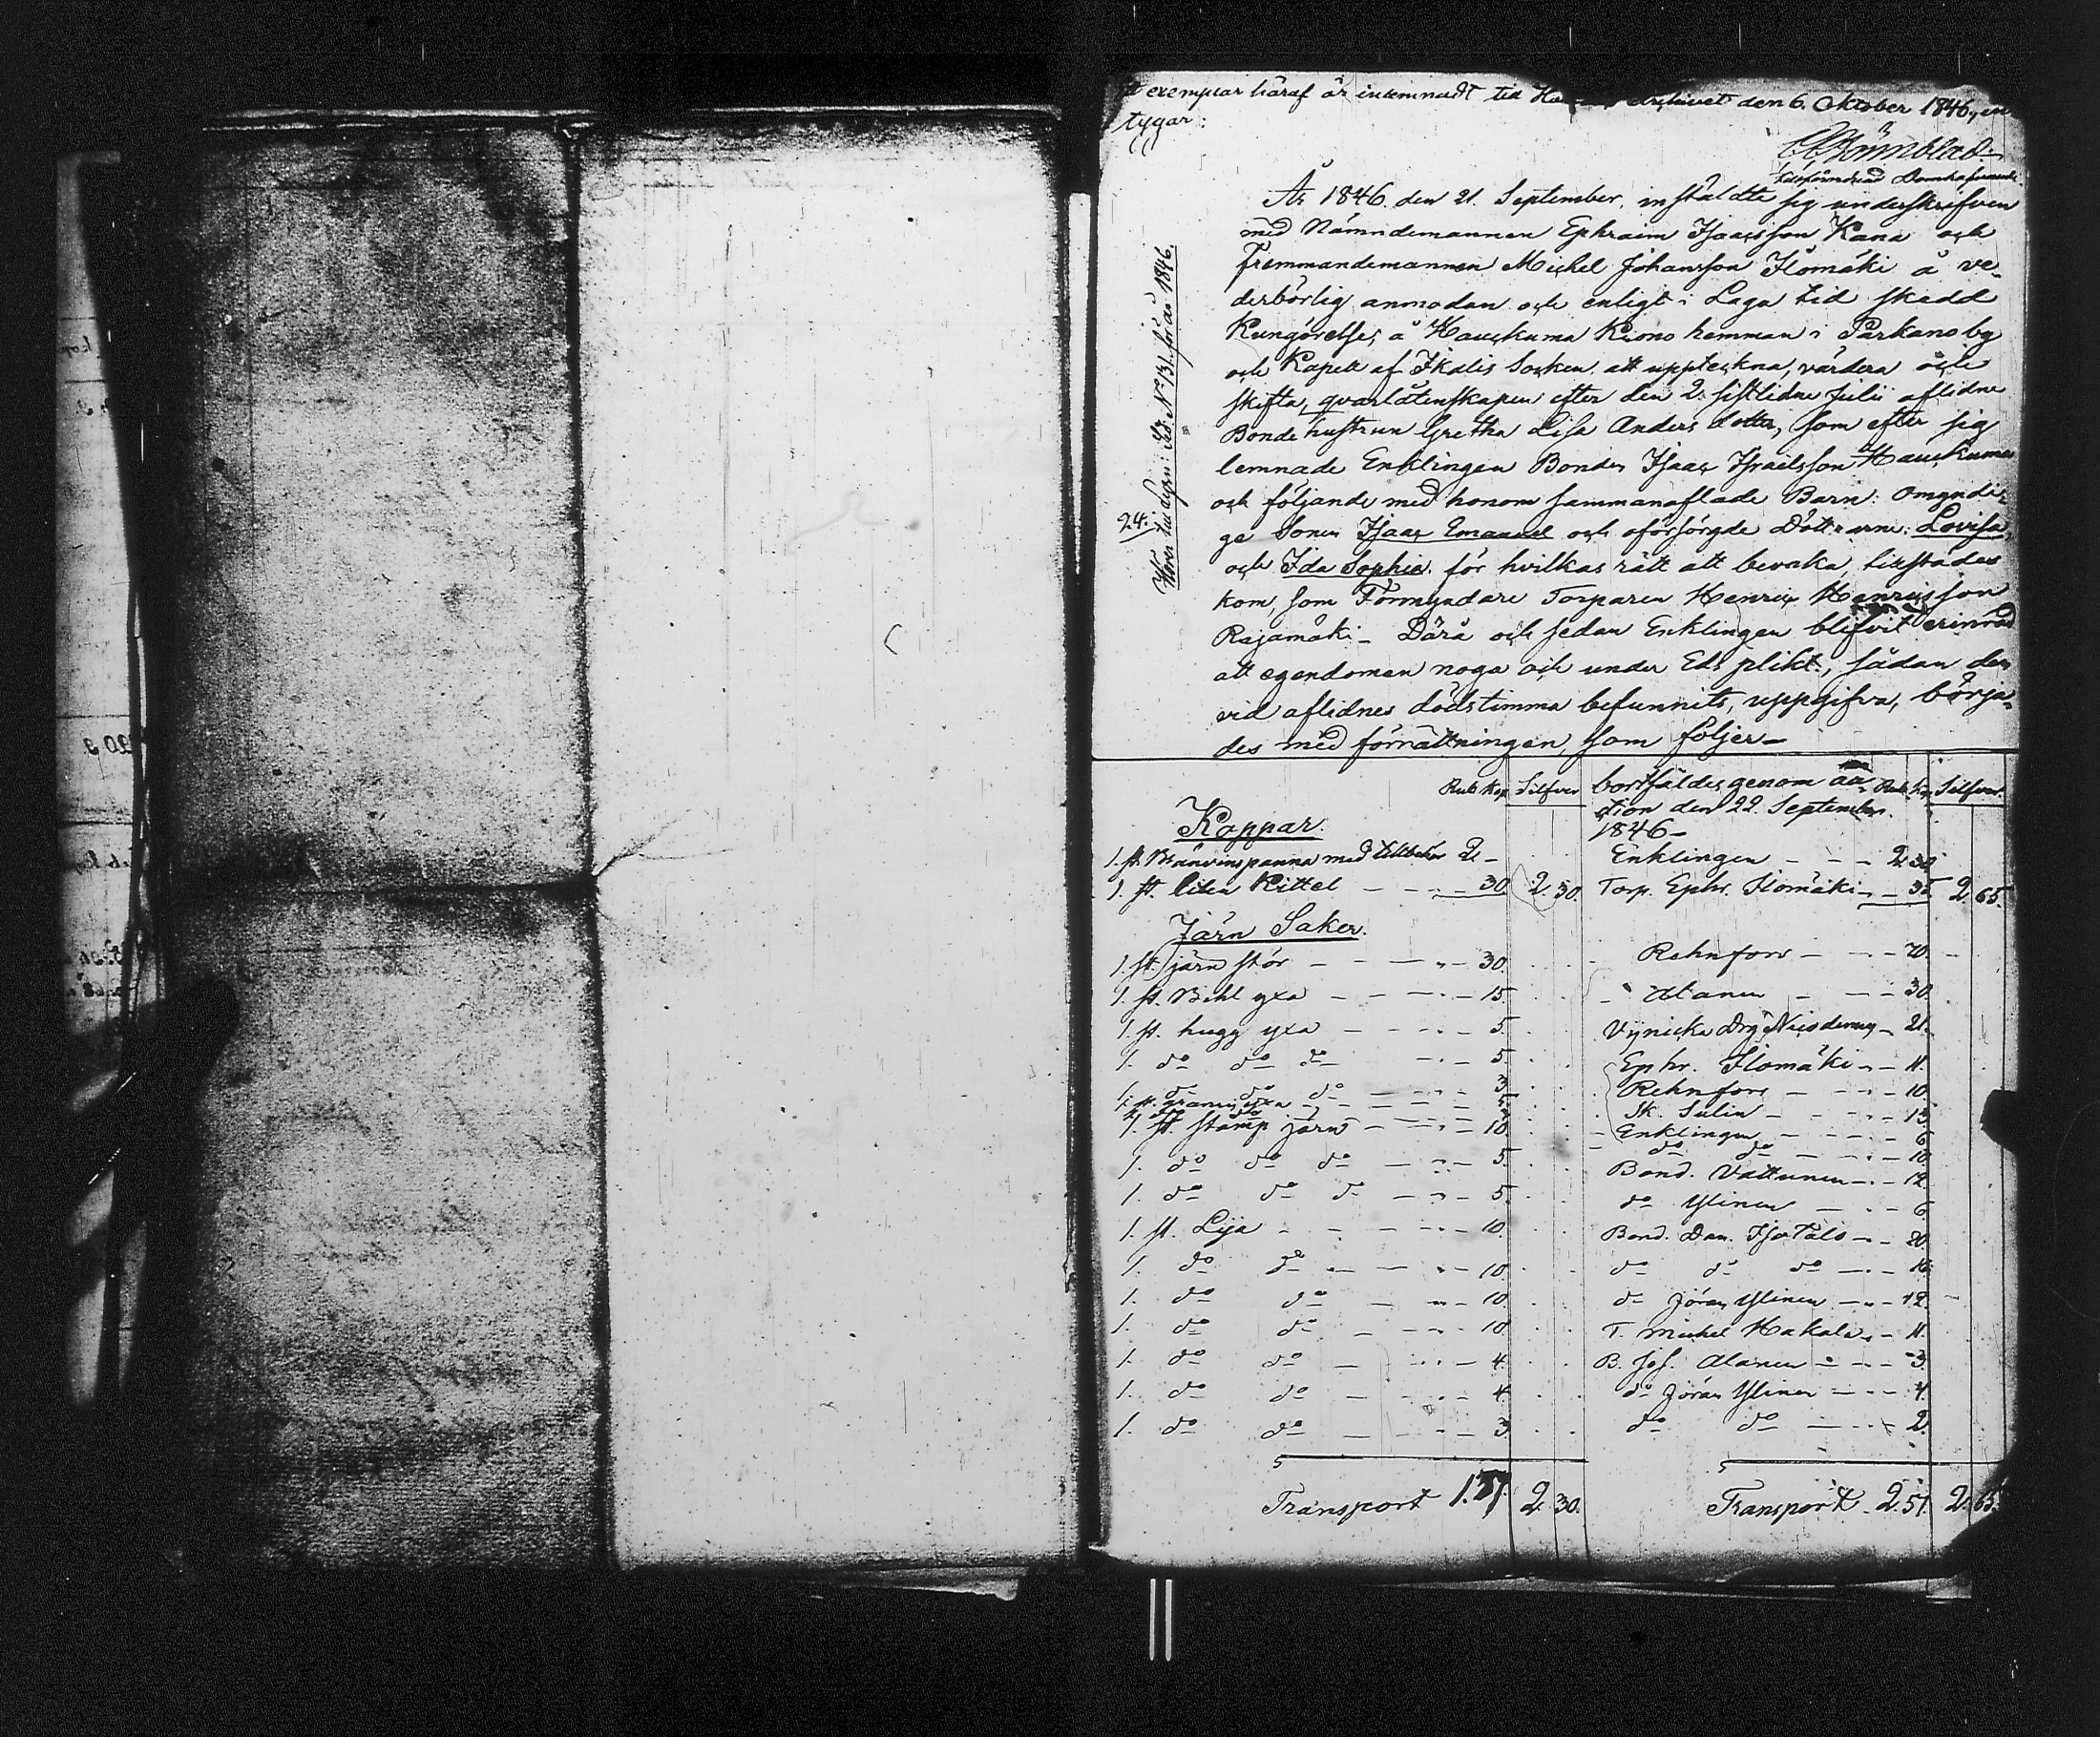 exemplar häraf är inlemnadt till den 6. Oktober 1846,
tygar:
År 1846. den 21. September, instäldte sig underskrifven
med Nämndemannen Ephraim Isacsson Kana och
Fremmandemannen Michel Johansson Ilomäki å ve-
derbörlig anmodan och enligt i Laga tid skedd
Kungörelse, å Hauckuma Krono hemman i Parkano by
och Kapell af Ikalis Socken, att uppteckna, värdera och
skifta, qvarlåtenskapen efter den 2. sistlidne Julii aflidne
Bondehustrun Gretha Lisa Anders dotter, som efter sig
lemnade Enklingen Bonden Isaac Israelsson Hauckuma
och följande med honom sammanaflade Barn: omyndi-
24.
ge Sonen Isaac Emanuel och oförsörgde Döttrarne: Lovisa,
och Ida Sophia. för hvilkas rätt att bevaka, tillstädes
kom, som Förmyndare Torparen Henric Henricsson
Rajamäki - Därå och sedan Enklingen blifvit erinrad
att egendomen noga och under Eds plikt, sådan den
vid aflidnes dödstimma befunnits, uppgifva, börja-
des med förrättningen, som följer-
Rub. Kop. Silfver bortsåldes genom auc- Rub. Kop. Silfver.
tion den 22. September.
Koppar. 1846-
1. st. Bränvins panna med tillbehör 2 - Enklingen - - - 2.30
1. st. liten Kittel - - - 30 2. 30. Torp. Ephr. Ilomäki - - 35 2. 65.
Järn Saker.
1. st. järn stör - - - 30. Rehnfors - - - 70.
1. st. Behl yxa - - - 15 Alanen - - - 30.
1. st. hugg yxa - - - 5. - 21.
1. do do do - - 5 Ephr. Ilomäki - - 11.
1. do do do - - 3 Rehnfors - - - 10
Sk. Sulin - - - 15
1. st. stamp järn - - - 10. Enklingen - - - 6
do do - - - 10
1. do do do - - 5. Bond. Vattunen - - 12
1. do do do - - 5. do Ylinen - - - 6
1. st. Lija - - - 10. Bond. Dan. Isotalo - - 20
1. do do - - - 10 do do do - - 16
1. do do - - - 10. do Jöran Ylinen - - 12
1. do do - - - 10 T. Michel Hakala - - 11.
1. do do - - - 4. B. Jos. Alanen - - - 3.
1. do do - - - 4. do Jöran Ylinen - - - 4.
1. do do - - - 3. do do - - - 2.
Transport 2. 30. Transport - 2.51. 2. 65.